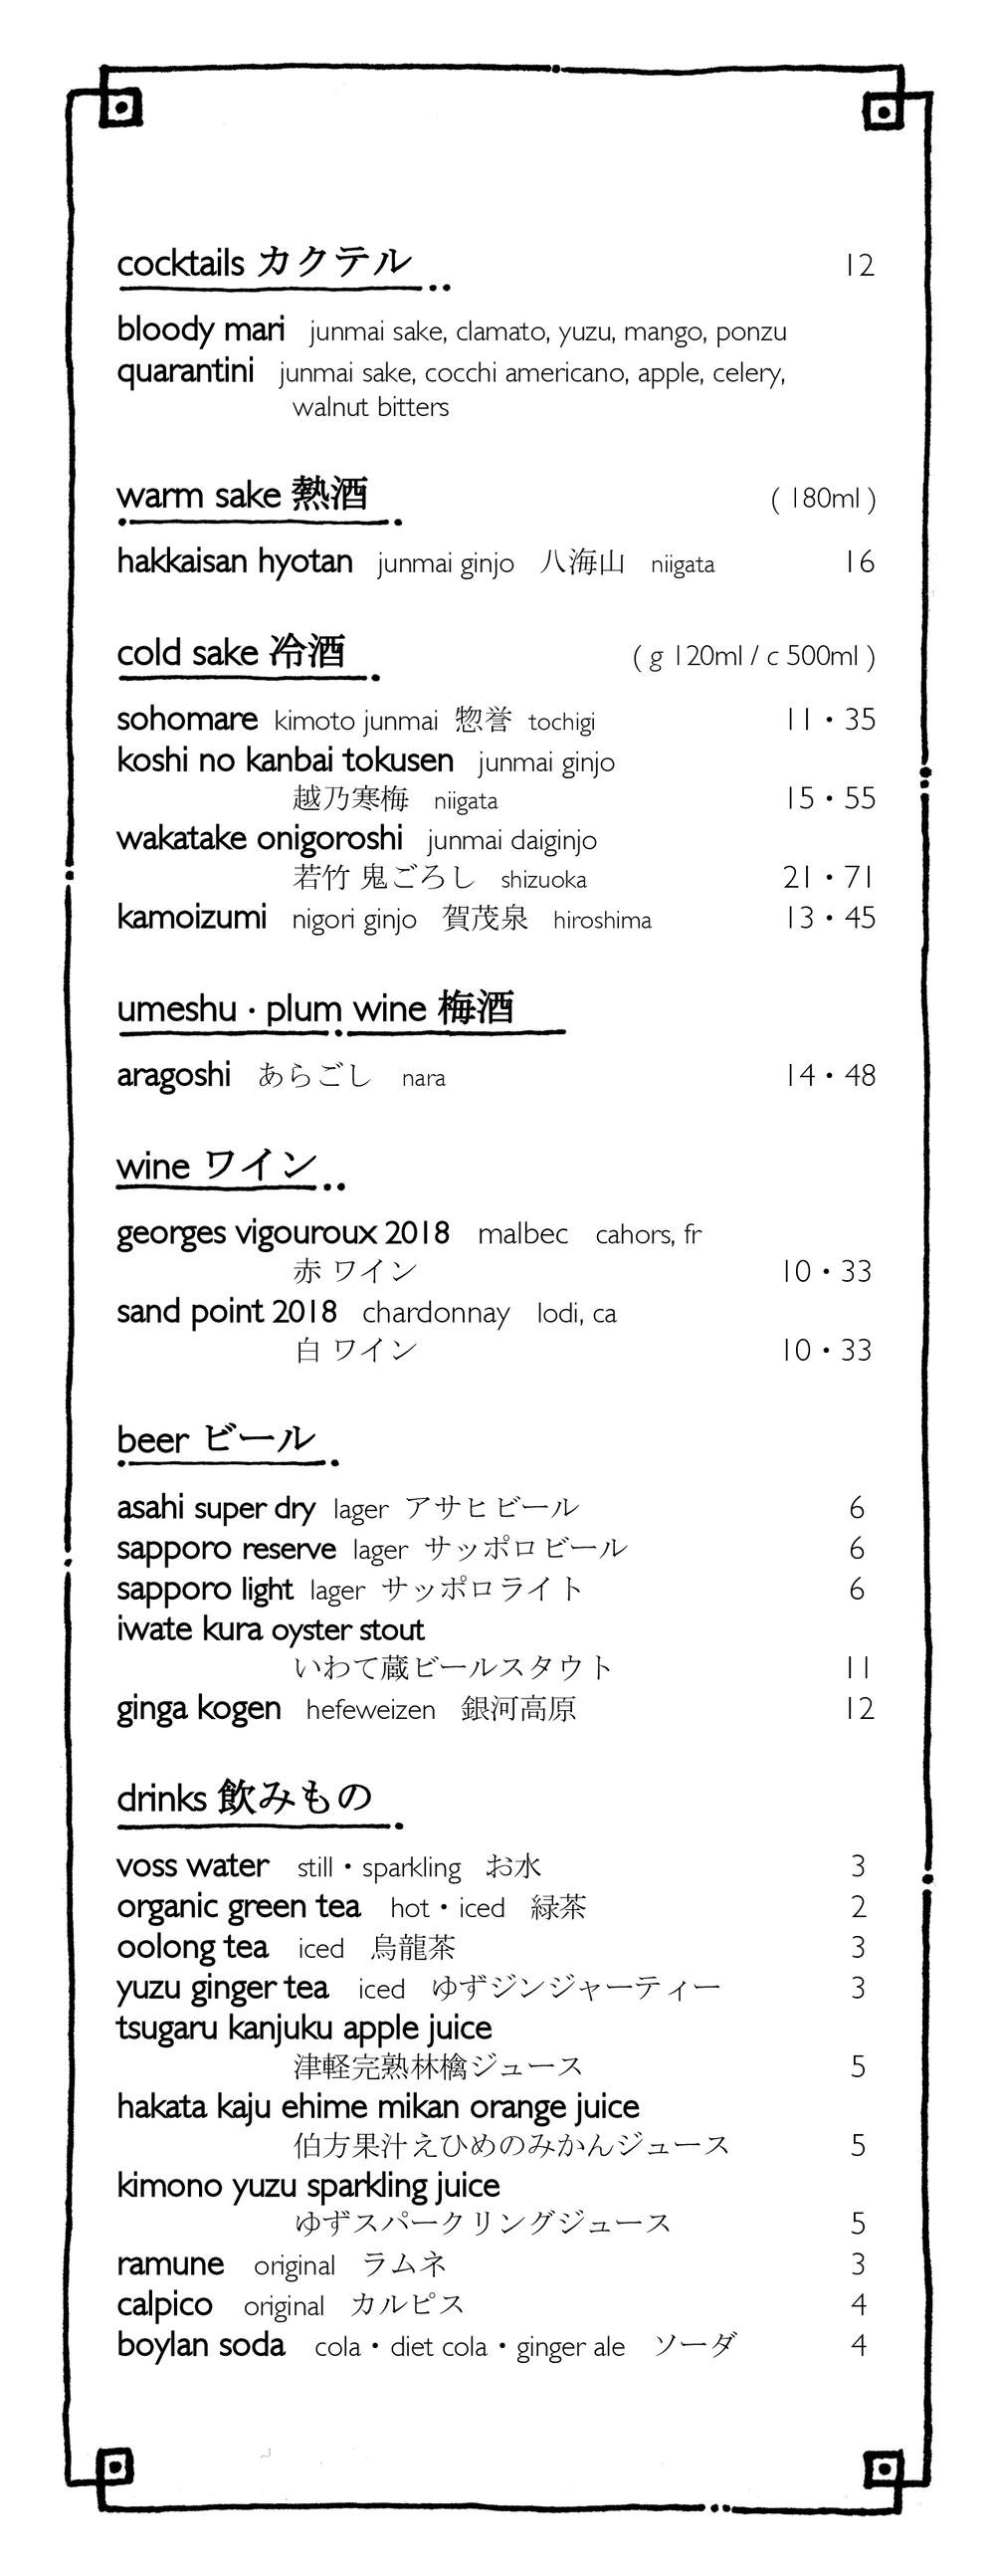 cocktails カクテル 12
bloody mari junmai sake, clamato, yuzu, mango, ponzu
quarantini junmai sake, cocchi americano, apple, celery,
walnut bitters
warm sake 熱酒 ( 180ml )
hakkaisan hyotan junmai ginjo 八海山 niigata 16
cold sake 冷酒 ( g 120ml / c 500ml )
sohomare kimoto junmai 惣誉 tochigi 11・35
koshi no kanbai tokusen junmai ginjo
越乃寒梅 niigata 15・55
wakatake onigoroshi junmai daiginjo
若竹 鬼ごろし shizuoka 21・71
kamoizumi nigori ginjo 賀茂泉 hiroshima 13・45
umeshu · plum wine 梅酒
aragoshi あらごし nara 14・48
wine ワイン
georges vigouroux 2018 malbec cahors, fr
赤 ワイン 10・33
sand point 2018 chardonnay lodi, ca
白 ワイン 10・33
beer ビール
asahi super dry lager アサヒビール 6
sapporo reserve lager サッポロビール 6
sapporo light lager サッポロライト 6
iwate kura oyster stout
いわて蔵ビールスタウト 11
ginga kogen hefeweizen 銀河高原 12
drinks 飲みもの
voss water still・sparkling お水 3
organic green tea hot・iced 緑茶 2
oolong tea iced 烏龍茶 3
yuzu ginger tea iced ゆずジンジャーティー 3
tsugaru kanjuku apple juice
津軽完熟林檎ジュース 5
hakata kaju ehime mikan orange juice
伯方果汁えひめのみかんジュース 5
kimono yuzu sparkling juice
ゆずスパークリングジュース 5
ramune original ラムネ 3
calpico original カルピス 4
boylan soda cola・diet cola・ginger ale ソーダ 4